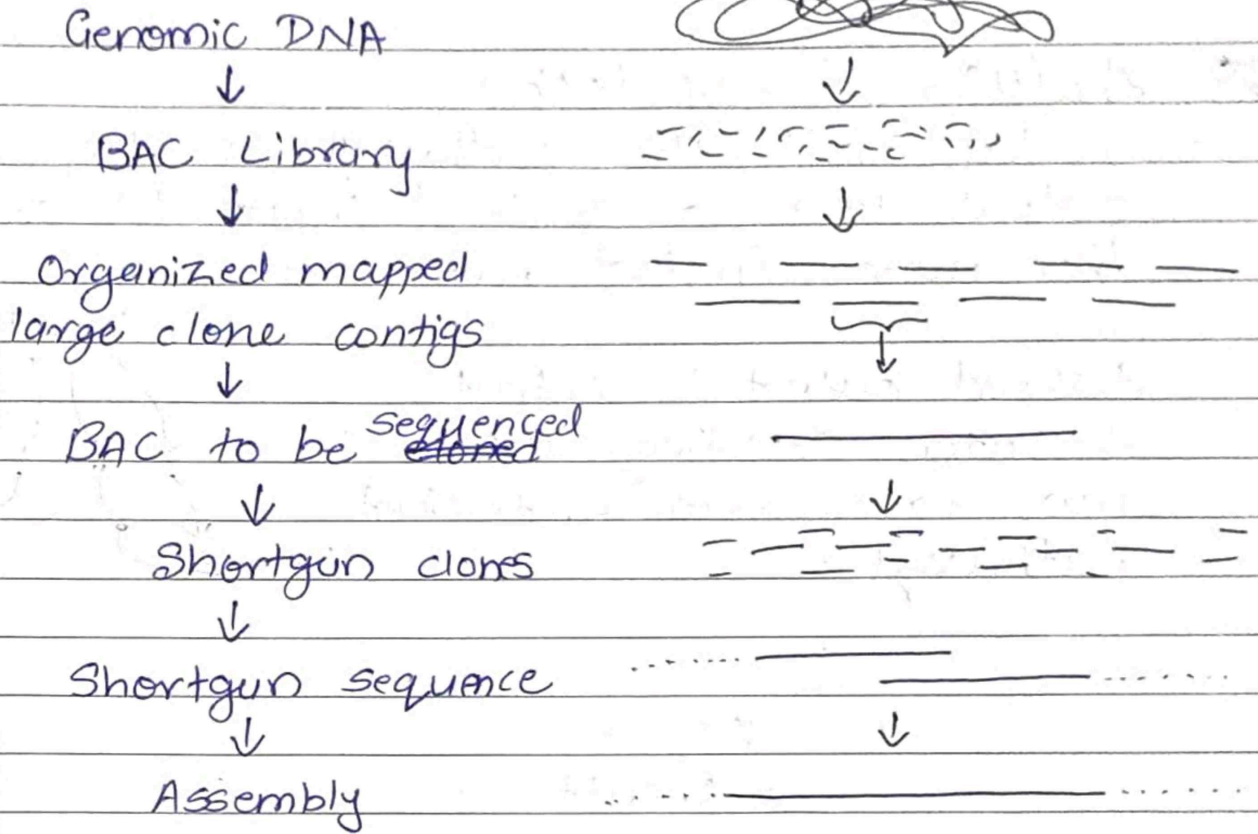 Genomic DNA
↓
BAC Library
↓
Organized mapped
large clone contigs
↓
BAC to be sequenced
↓
Shortgun clones
↓
Shortgun sequence
↓
Assembly